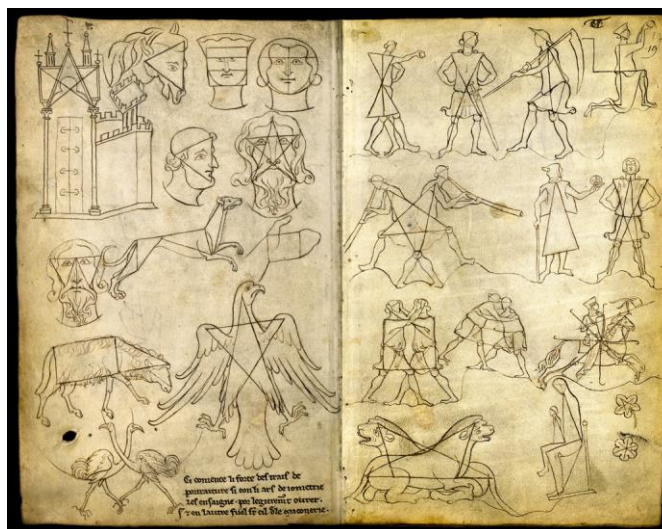 19
Ci comence li force des trais de
portraiture si con li ars de iometrie
les ensaigne · por legierem̄t ovrer.
⁊ en lautre fuel st̄ cil dle maconerie.